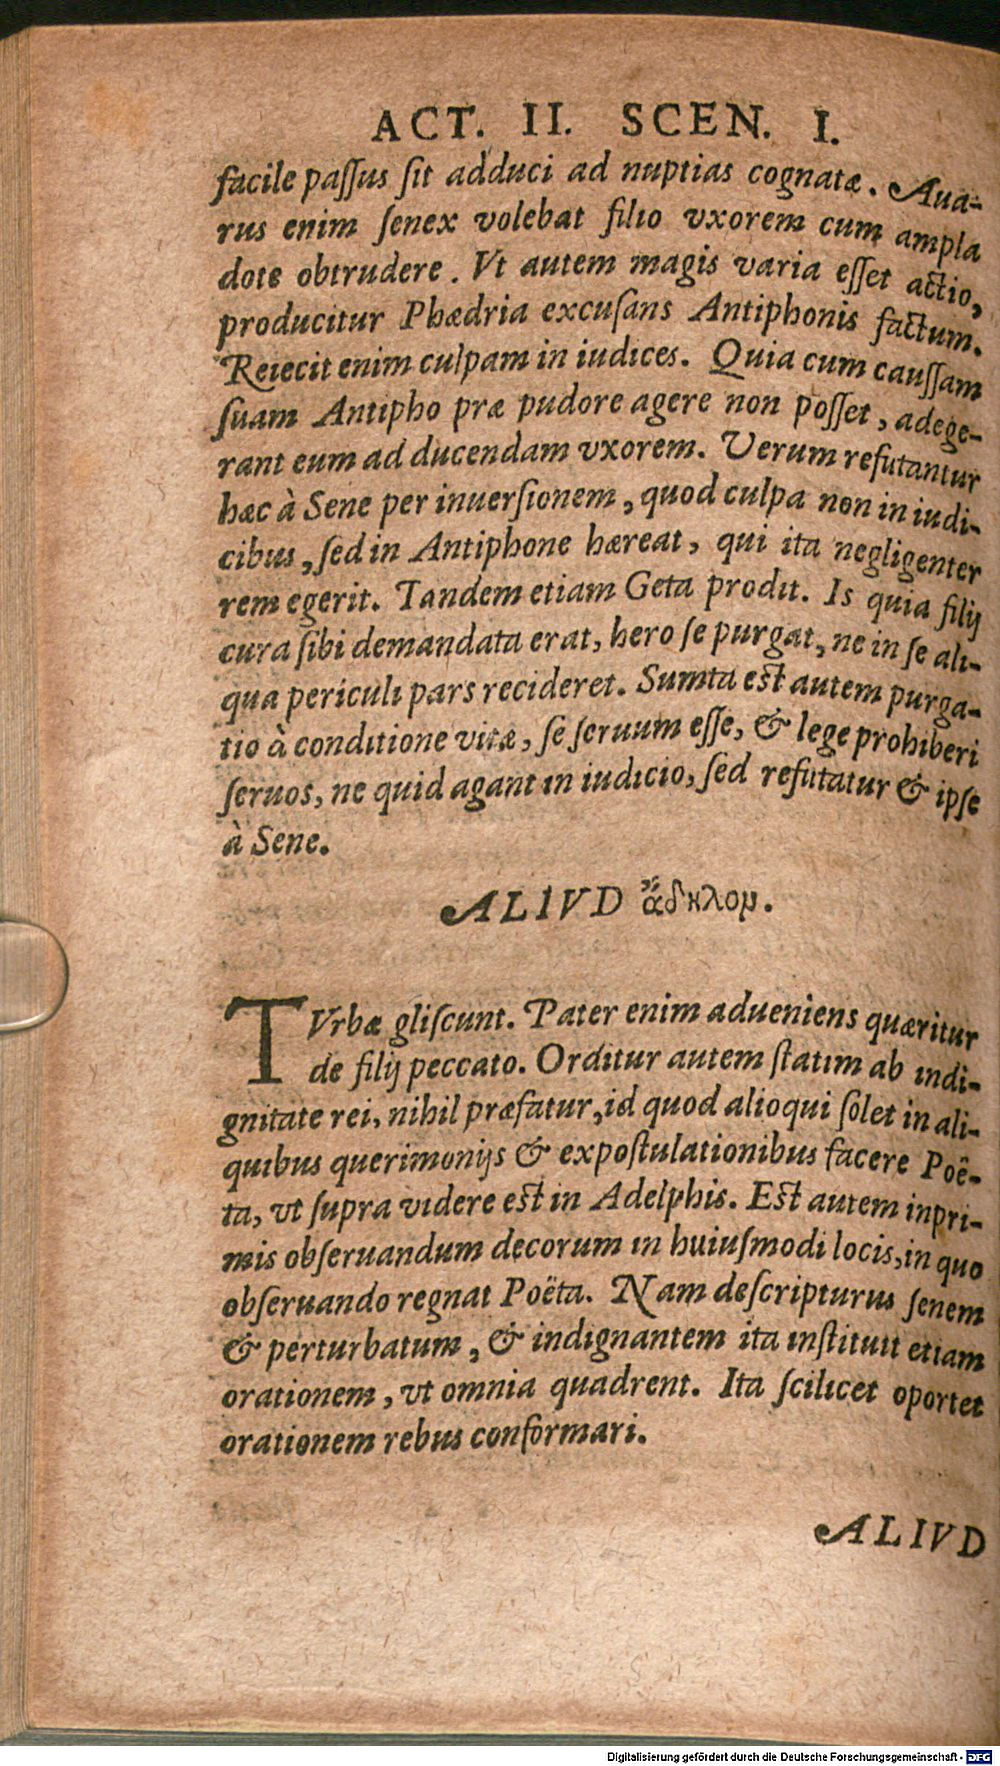 ACT. II. SCEN. I.
facile paſſus ſit adduci ad nuptias cognatæ. Aua-
rus enim ſenex volebat filio vxorem cum ampla
dote obtrudere. Vt autem magis varia eſſet actio,
producitur Phædria excuſans Antiphonis factum.
Reiecit enim culpam in iudices. Quia cum cauſſam
ſuam Antipho præ pudore agere non poſſet, adege-
rant eum ad ducendam vxorem. Verum refutantur
hæc à Sene per inuerſionem, quod culpa non in iudi-
cibus, ſed in Antiphone hæreat, qui ita negligenter
rem egerit. Tandem etiam Geta prodit. Is quia filij
cura ſibi demandata erat, hero ſe purgat, ne in ſe ali-
qua periculi pars recideret. Sumta eſt autem purga-
tio à conditione vitæ, ſe ſeruum eſſe, & lege prohiberi
ſeruos, ne quid agant in iudicio, ſed refutatur & ipſe
à Sene.
ALIVD ἄδηλον.
TVrbæ gliſcunt. Pater enim adueniens quæritur
de filij peccato. Orditur autem ſtatim ab indi-
gnitate rei, nihil præfatur, id quod alioqui ſolet in ali-
quibus querimonijs & expoſtulationibus facere Poë-
ta, vt ſupra videre eſt in Adelphis. Eſt autem inpri-
mis obſeruandum decorum in huiuſmodi locis, in quo
obſeruando regnat Poëta. Nam deſcripturus ſenem
& perturbatum, & indignantem ita inſtituit etiam
orationem, vt omnia quadrent. Ita ſcilicet oportet
orationem rebus conformari.
ALIVD
Digitalisierung gefördert durch die Deutsche Forschungsgemeinschaft - DFG